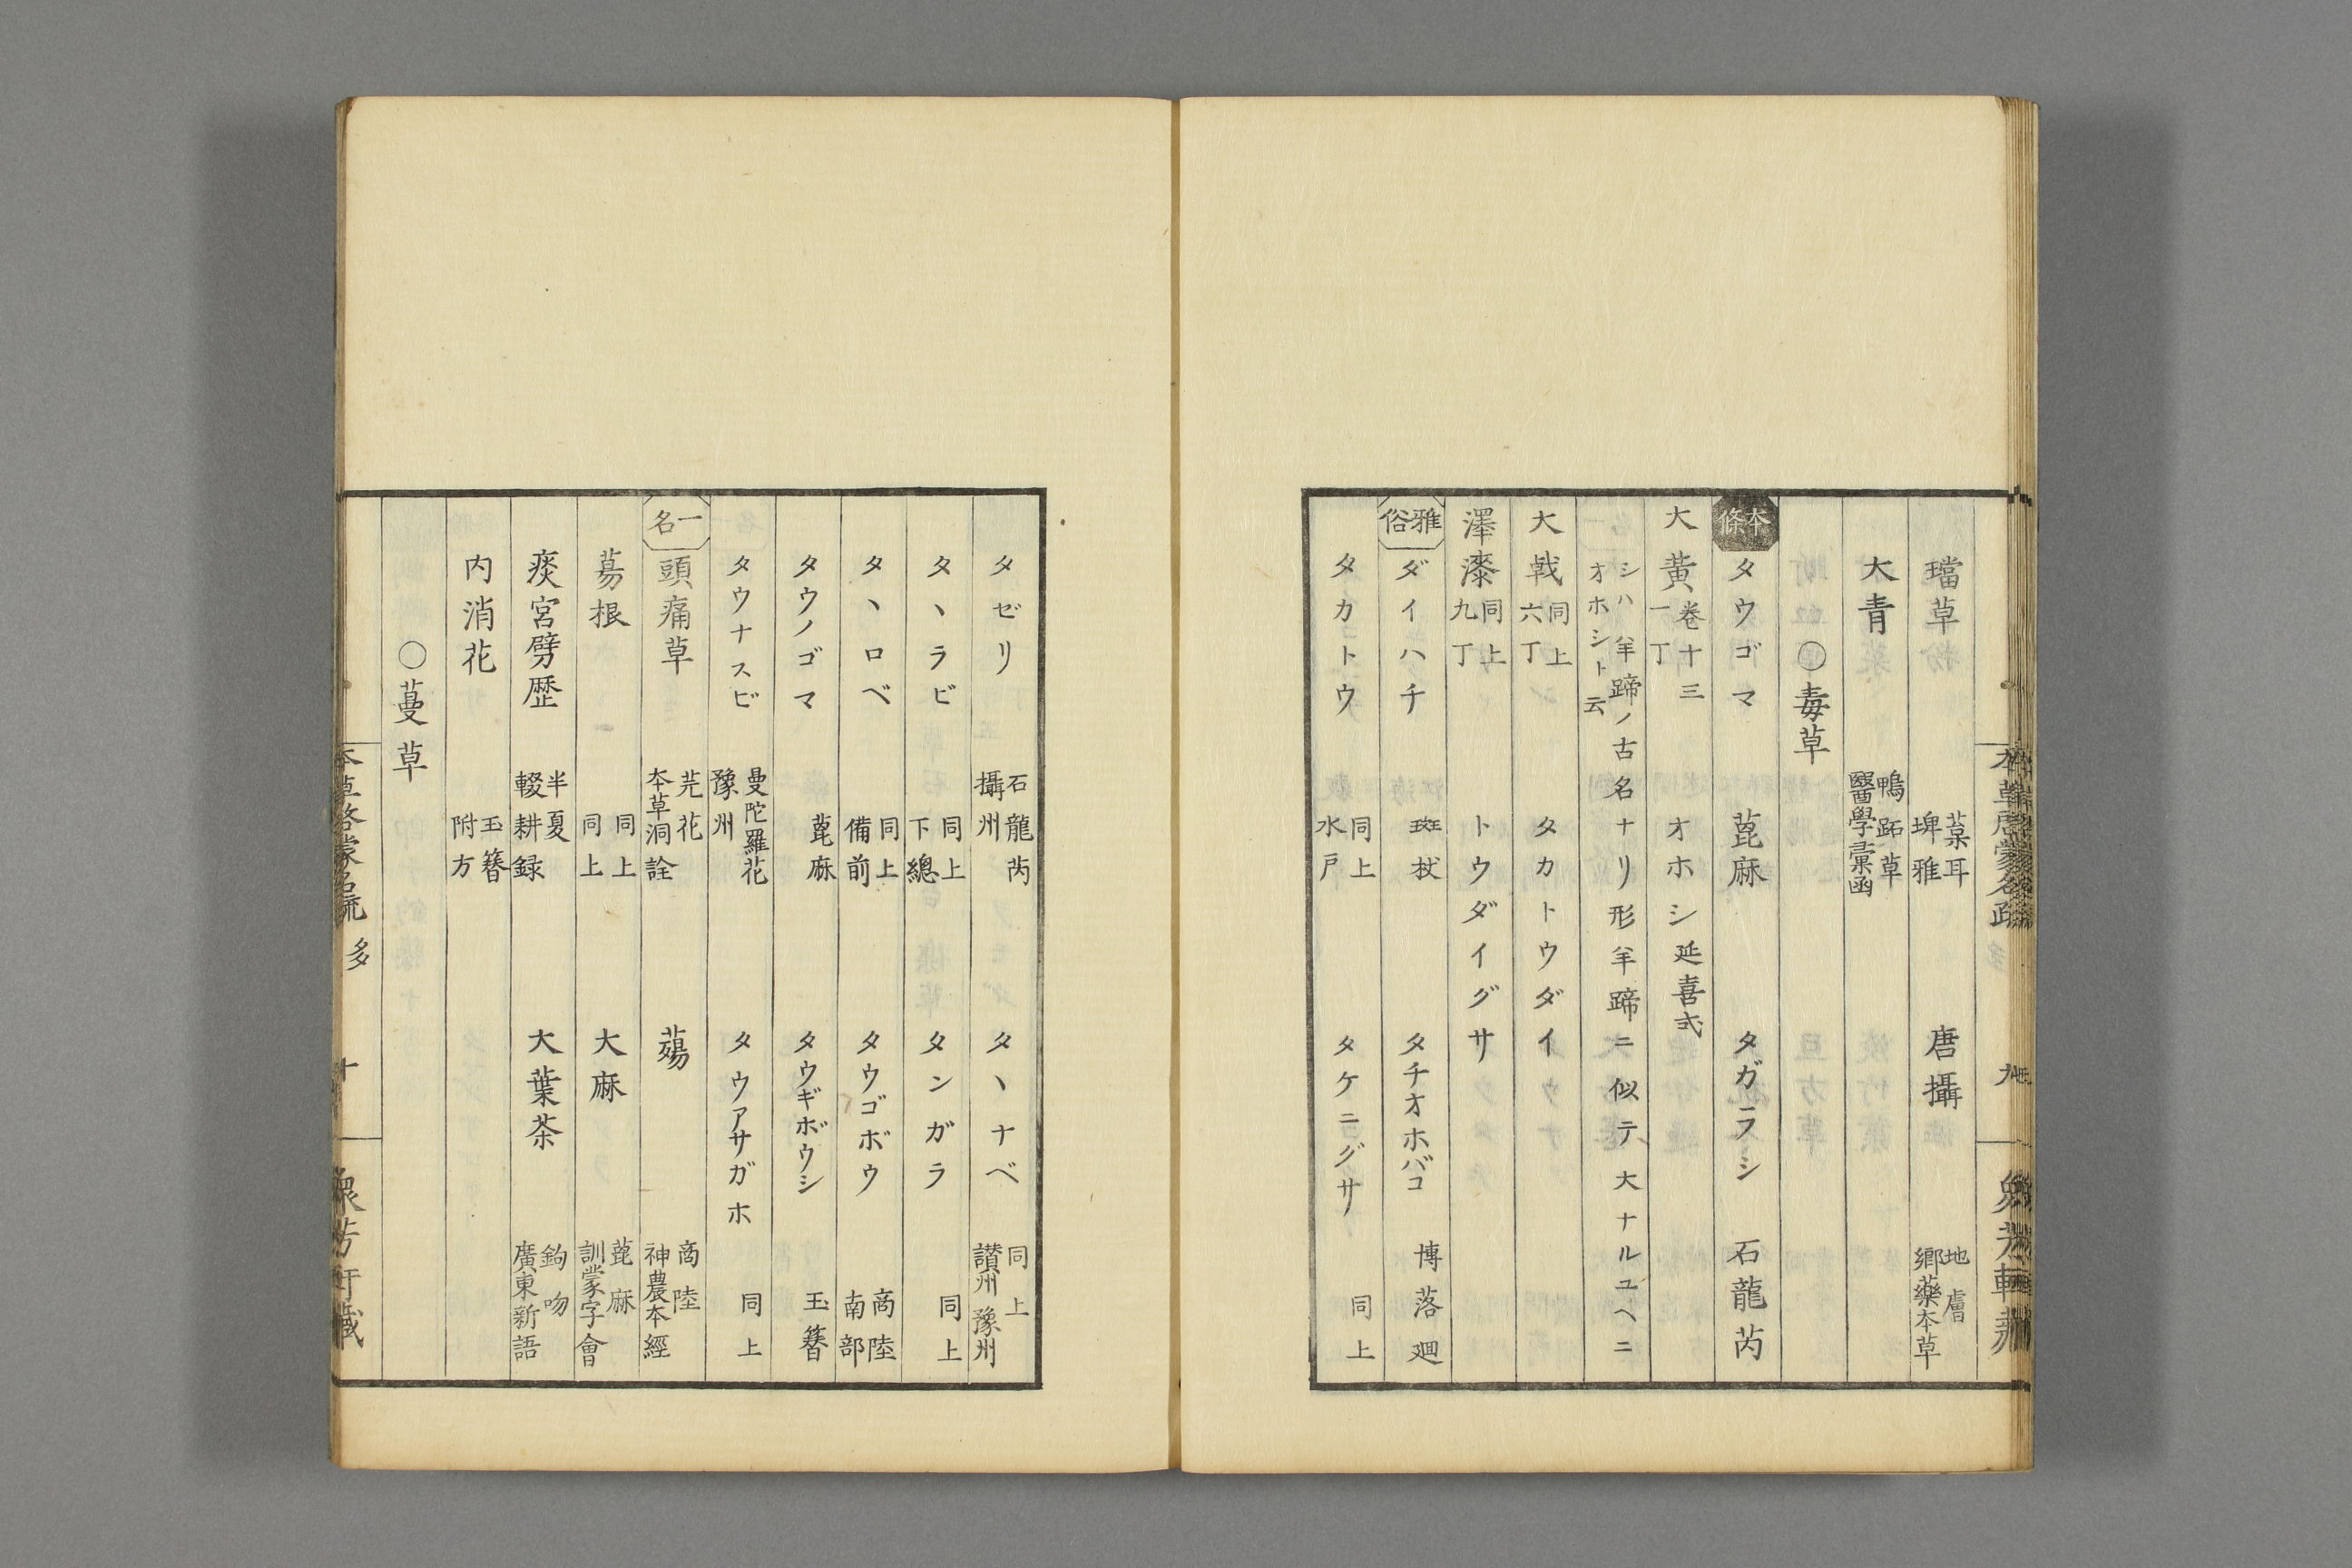 璫草 葈耳 埤雅 唐攝 地膚 鄉藥本草
大青 鴨跖草 醫學彙函
○毒草
本條 タウゴマ 蓖麻 タガラシ 石龍芮
大黃 卷十三 一丁 オホシ延喜式
シハ羊蹄ノ古名ナリ形羊蹄ニ似テ大ナルユヘニ
オホシト云
大戟 同上 六丁 タカトウダイ
澤漆 同上 九丁 トウダイグサ
雅俗 ダイハチ 斑杖 タチオホバコ 博落廻
タカトウ 同上 水戸 タケニグサ 同上
本草啓蒙名疏 多 九
タゼリ 石龍芮 攝州 タヽナベ 同上 讃州 豫州
タヽラビ 同上 下總 タンガラ 同上
タヽロベ 同上 備前 タウゴボウ 商陸 南部
タウノゴマ 蓖麻 タウギボウシ 玉簪
タウナスビ 曼陀羅花 豫州 タウアサガホ 同上
一名 頭痛草 芫花 本草洞詮 蔏 商陸 神農本經
蕩根 同上 同上 大麻 蓖麻 訓蒙字會
痰宮劈歷 半夏 輟耕録 大葉茶 鉤吻 廣東新語
内消花 玉簪 附方
○蔓草
本草啓蒙名疏 多 十